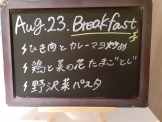 Aug.23. Breakfast
ひき肉とカレーマヨ炒め
鶏と菜の花たまごとじ
野沢菜パスタ